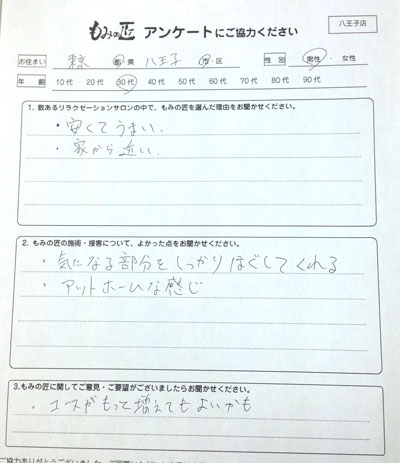 八王子店
もみの匠 アンケートにご協力ください
お住まい 東京 都・県 八王子 市・区 性別 男性・女性
年齢 10代 20代 30代 40代 50代 60代 70代 80代 90代
1. 数あるリラクゼーションサロンの中で、もみの匠を選んだ理由をお聞かせください。
・安くてうまい.
・家から近い.
2. もみの匠の施術・接客について、よかった点をお聞かせください。
・気になる部分をしっかりほぐしてくれる
・アットホームな感じ
3.もみの匠に関してご意見・ご要望がございましたらお聞かせください。
・コースがもっと増えてもよいかも
ご協力ありがとうございました。